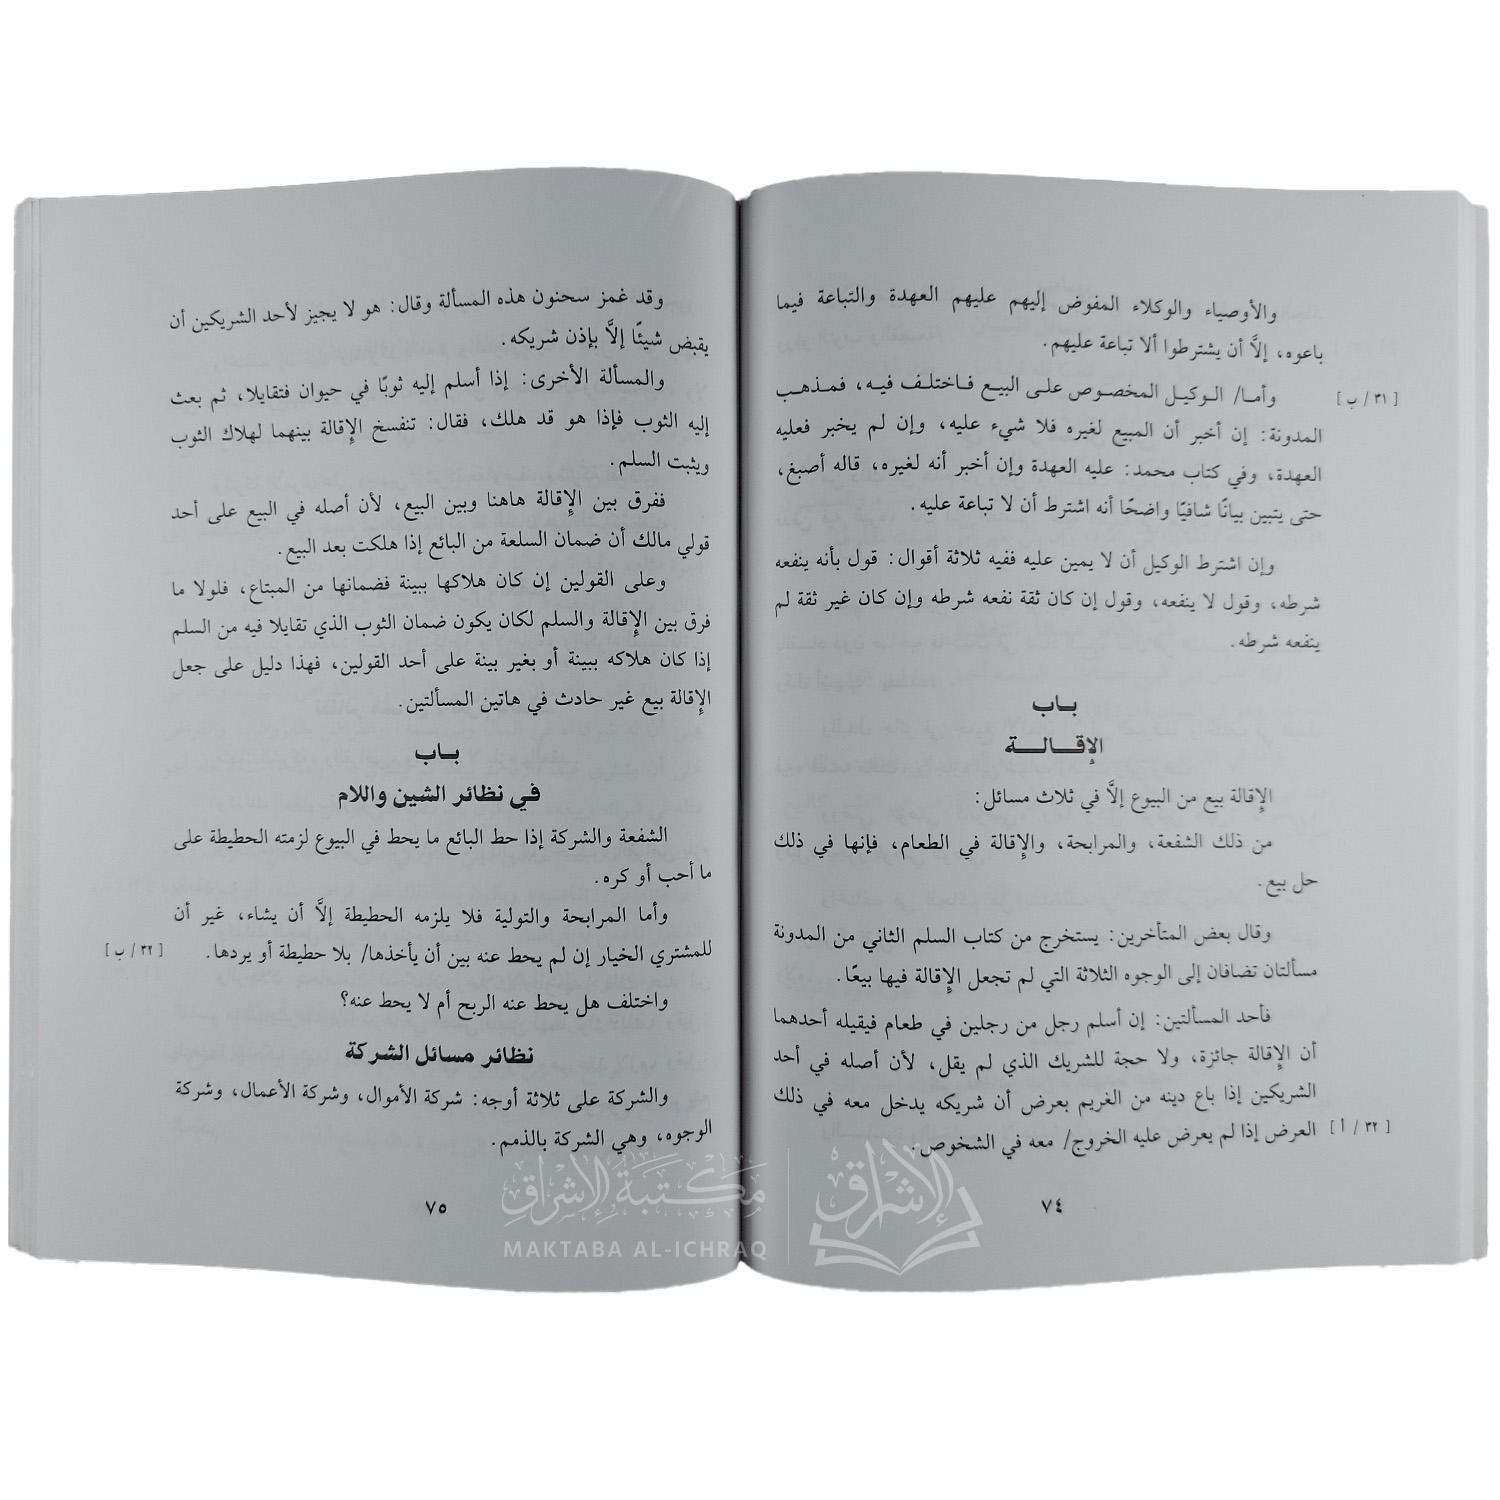 والأوصياء والوكلاء المفوض إليهم عليهم العهدة والتباعة فيما
باعوه، إلَّا أن يشترطوا ألا تباعة عليهم.
وأمـا/ الـوكيـل المخصـوص علـى البيـع فـاختلـف فيـه، فمـذهـب [ ٣١ / ب ]
المدونة: إن أخبر أن المبيع لغيره فلا شيء عليه، وإن لم يخبر فعليه
العهدة، وفي كتاب محمد: عليه العهدة وإن أخبر أنه لغيره، قاله أصبغ،
حتى يتبين بيانًا شافيًا واضحًا أنه اشترط أن لا تباعة عليه.
وإن اشترط الوكيل أن لا يمين عليه ففيه ثلاثة أقوال: قول بأنه ينفعه
شرطه، وقول لا ينفعه، وقول إن كان ثقة نفعه شرطه وإن كان غير ثقة لم
ينفعه شرطه.
بــاب
الإقــالــة
الإقالة بيع من البيوع إلَّا في ثلاث مسائل:
من ذلك الشفعة، والمرابحة، والإقالة في الطعام، فإنها في ذلك
حل بيع.
وقال بعض المتأخرين: يستخرج من كتاب السلم الثاني من المدونة
مسألتان تضافان إلى الوجوه الثلاثة التي لم تجعل الإقالة فيها بيعًا.
فأحد المسألتين: إن أسلم رجل من رجلين في طعام فيقيله أحدهما
أن الإقالة جائزة، ولا حجة للشريك الذي لم يقل، لأن أصله في أحد
الشريكين إذا باع دينه من الغريم بعرض أن شريكه يدخل معه في ذلك
العرض إذا لم يعرض عليه الخروج/ معه في الشخوص. [ ٣٢ / أ ]
٧٤
وقد غمز سحنون هذه المسألة وقال: هو لا يجيز لأحد الشريكين أن
يقبض شيئًا إلَّا بإذن شريكه.
والمسألة الأخرى: إذا أسلم إليه ثوبًا في حيوان فتقايلا، ثم بعث
إليه الثوب فإذا هو قد هلك، فقال: تنفسخ الإقالة بينهما لهلاك الثوب
ويثبت السلم.
ففرق بين الإقالة هاهنا وبين البيع، لأن أصله في البيع على أحد
قولي مالك أن ضمان السلعة من البائع إذا هلكت بعد البيع.
وعلى القولين إن كان هلاكها ببينة فضمانها من المبتاع، فلولا ما
فرق بين الإقالة والسلم لكان يكون ضمان الثوب الذي تقايلا فيه من السلم
إذا كان هلاكه ببينة أو بغير بينة على أحد القولين، فهذا دليل على جعل
الإقالة بيع غير حادث في هاتين المسألتين.
بــاب
في نظائر الشين واللام
الشفعة والشركة إذا حط البائع ما يحط في البيوع لزمته الحطيطة على
ما أحب أو كره.
وأما المرابحة والتولية فلا يلزمه الحطيطة إلَّا أن يشاء، غير أن
للمشتري الخيار إن لم يحط عنه بين أن يأخذها/ بلا حطيطة أو يردها. [ ٣٢ / ب ]
واختلف هل يحط عنه الربح أم لا يحط عنه؟
نظائر مسائل الشركة
والشركة على ثلاثة أوجه: شركة الأموال، وشركة الأعمال، وشركة
الوجوه، وهي الشركة بالذمم.
٧٥
مكتبة الإشراق
MAKTABA AL-ICHRAQ
الإشراق